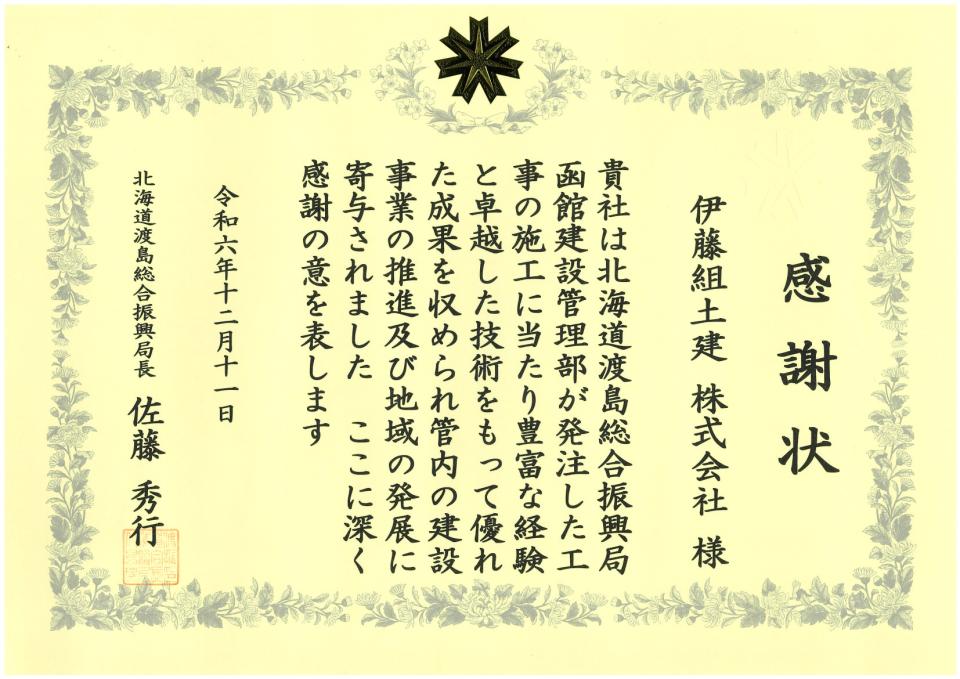 感謝状
伊藤組土建 株式会社 様
貴社は北海道渡島総合振興局
函館建設管理部が発注した工
事の施工に当たり豊富な経験
と卓越した技術をもって優れ
た成果を収められ管内の建設
事業の推進及び地域の発展に
寄与されました ここに深く
感謝の意を表します
令和六年十二月十一日
北海道渡島総合振興局長 佐藤 秀行